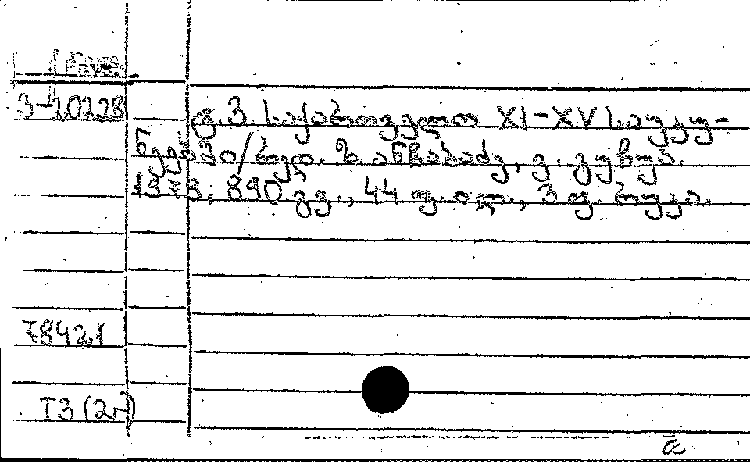 3-10228
ტ. 3. საქართველო XI-XV საუკუ-
ნეებში/რედ. ზ. ანჩაბაძე, ვ. გუჩუა.
890 გვ., 44 ფ. ილ., 3 ფ. რუკა.
78421
T3 (2რ)